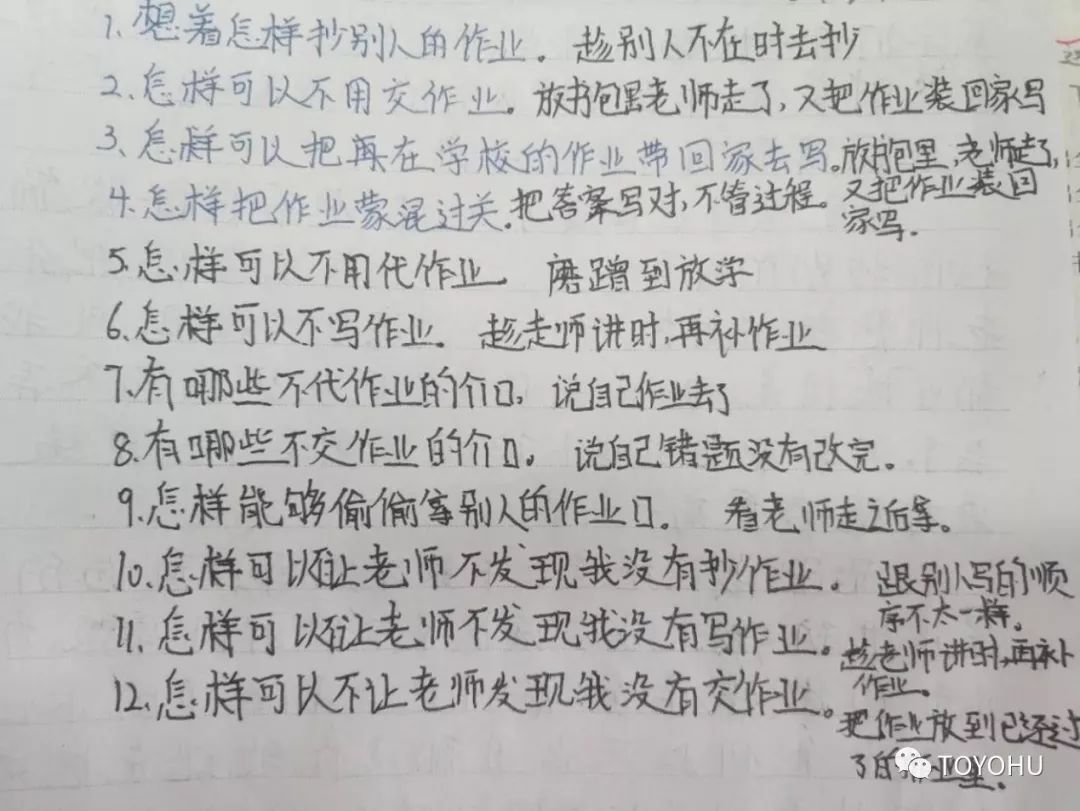 1. 想着怎样抄别人的作业。 趁别人不在时去抄
2. 怎样可以不用交作业。放书包里老师走了,又把作业装回家写
3. 怎样可以把再在学校的作业带回家去写。放书包里,老师走了,
又把作业装回
家写.
4. 怎样把作业蒙混过关。把答案写对,不管过程。
5. 怎样可以不用代作业。 磨蹭到放学
6. 怎样可以不写作业。 趁老师讲时,再补作业
7. 有哪些不代作业的介口, 说自己作业去了
8. 有哪些不交作业的介口。 说自己错题没有改完。
9. 怎样能够偷偷拿别人的作业口. 看老师走之后拿。
10. 怎样可以让老师不发现我没有抄作业。 跟别人写的顺
序不太一样。
11. 怎样可以让老师不发现我没有写作业。趁老师讲时,再补
作业。
12. 怎样可以不让老师发现我没有交作业。
把作业放到已经过
了的作业里。
TOYOHU